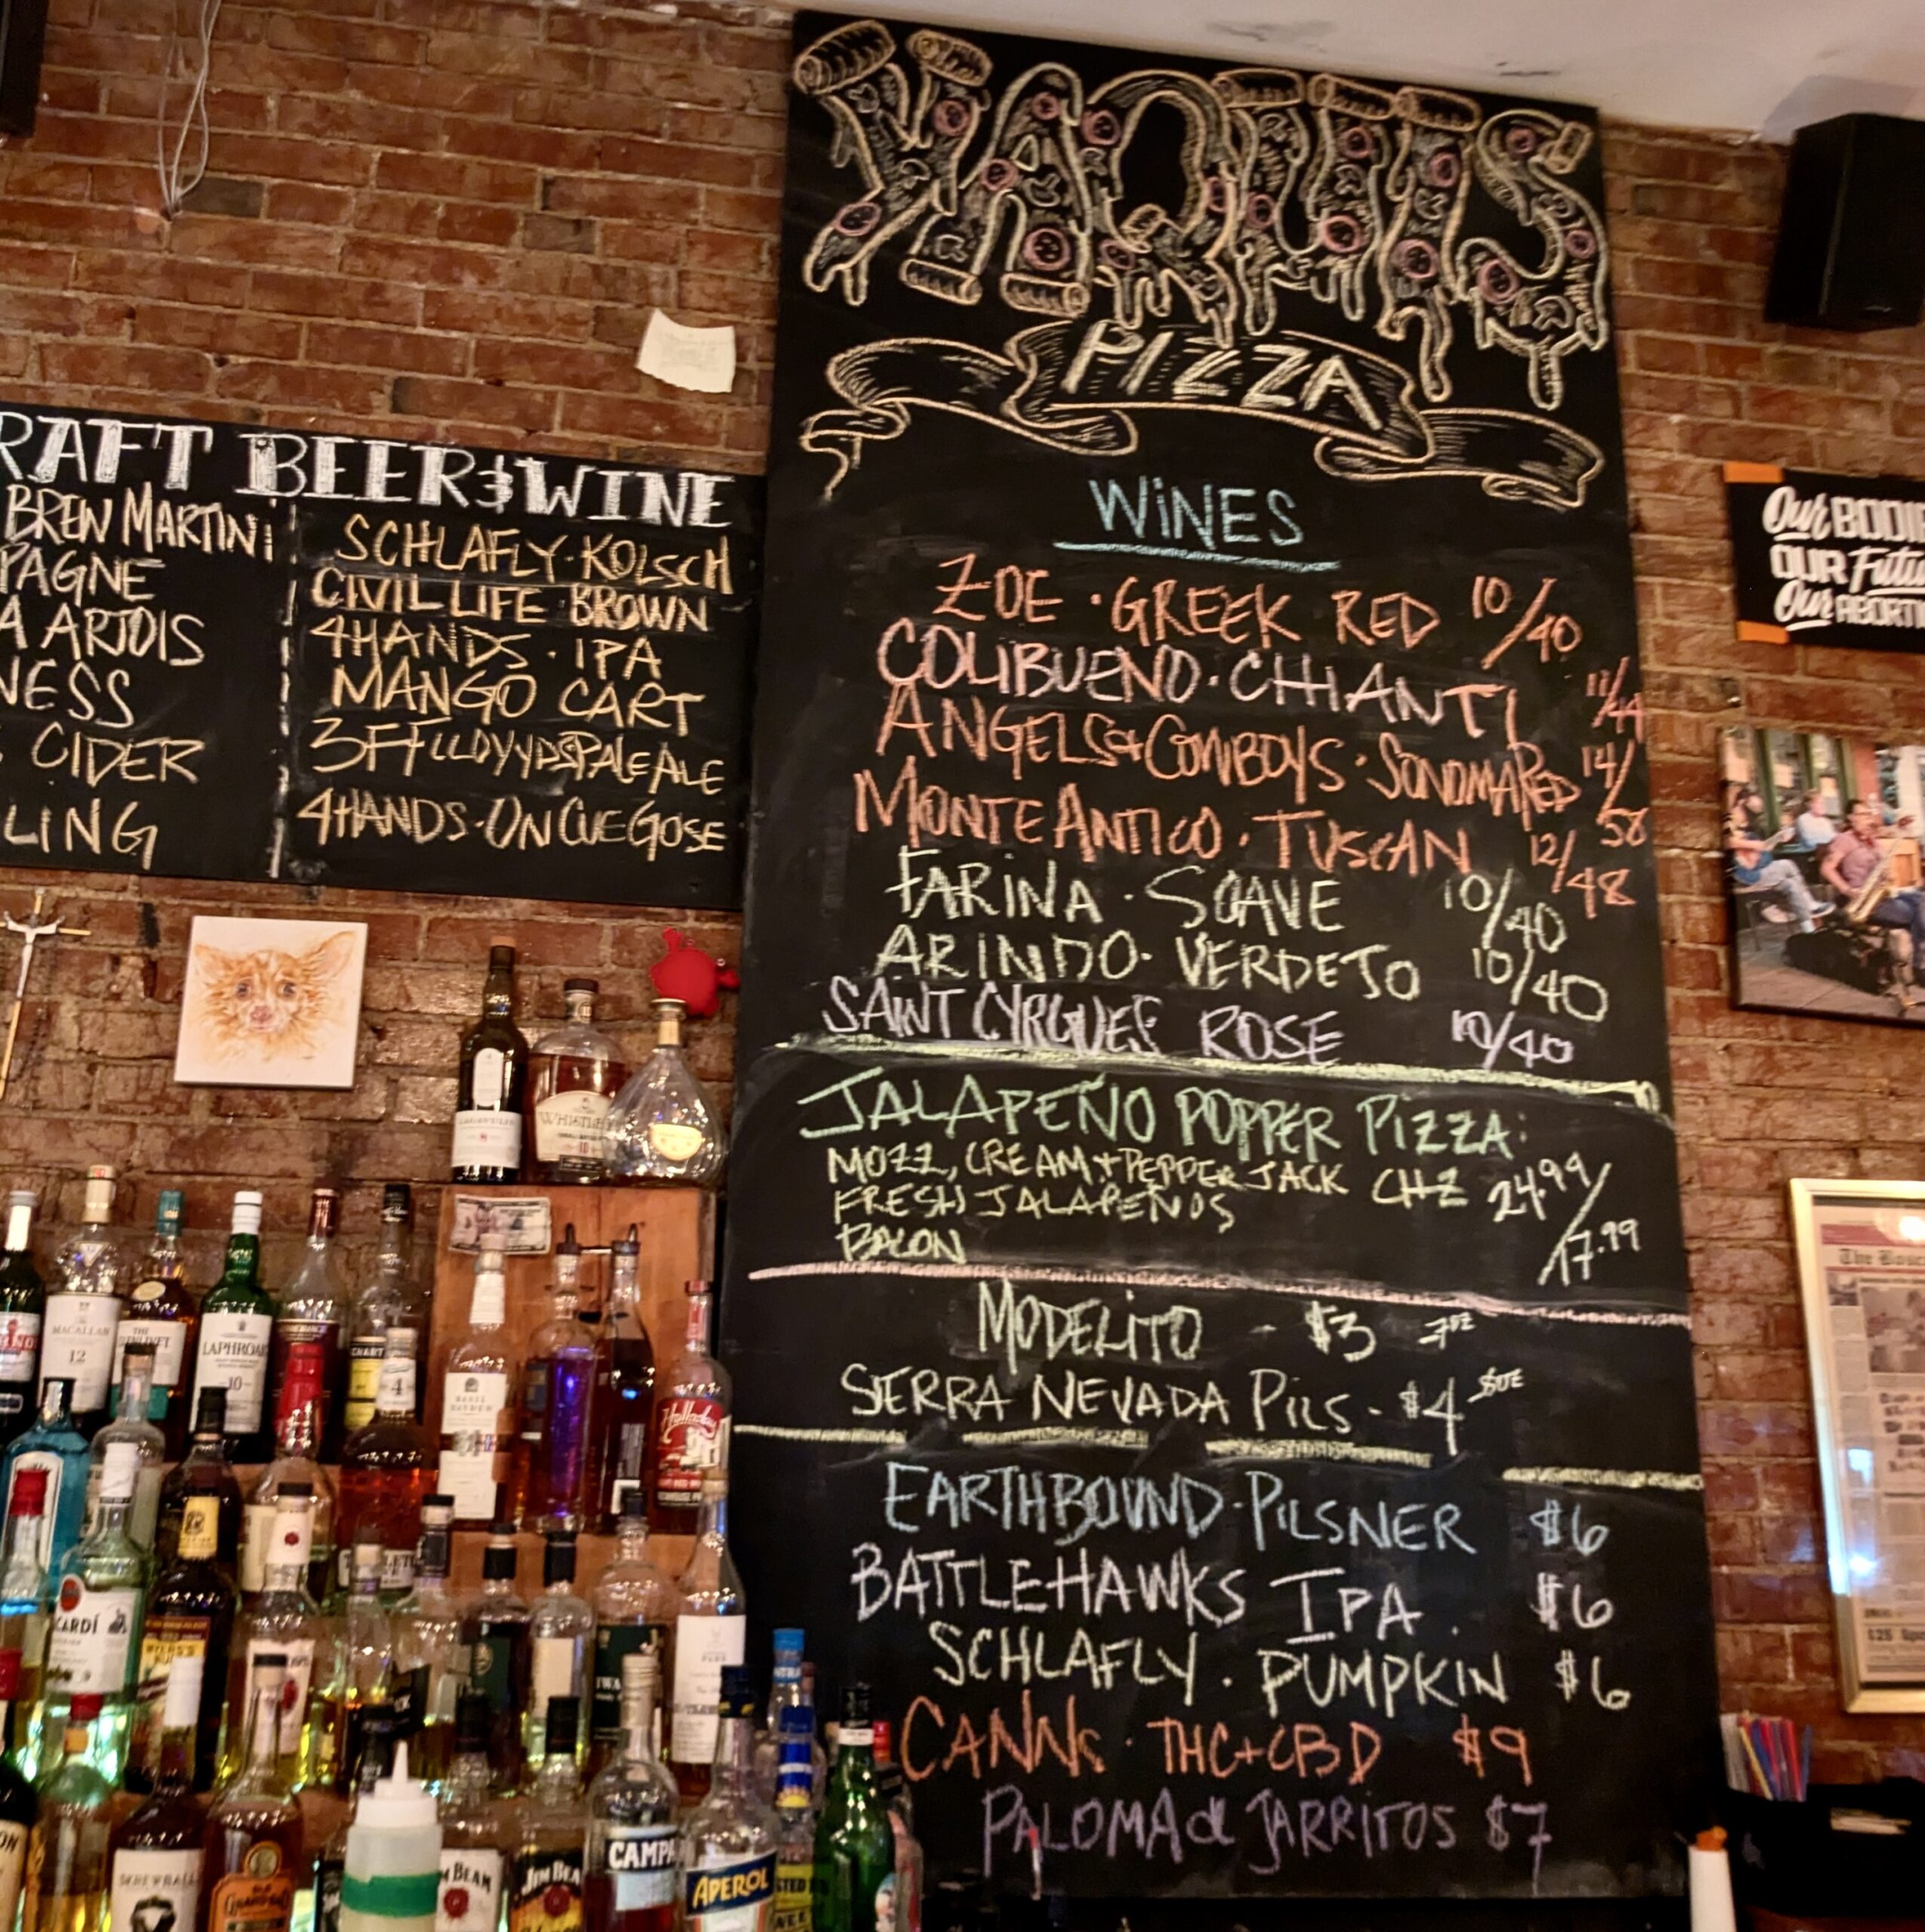 YAQUI'S
PIZZA
WINES
ZOE · GREEK RED 10/40
COLIBUENO · CHIANTI 11/44
ANGELS & COWBOYS · SONOMA RED 14/58
MONTE ANTICO · TUSCAN 12/48
FARINA · SOAVE 10/40
ARINDO · VERDEJO 10/40
SAINT CYRGUES ROSE 10/40
JALAPEÑO POPPER PIZZA:
MOZZ, CREAM + PEPPER JACK CHZ 24.99/
FRESH JALAPEÑOS
BACON 17.99
MODELITO - $3 7OZ
SIERRA NEVADA PILS - $4 8OZ
EARTHBOUND · PILSNER $6
BATTLEHAWKS IPA . $6
SCHLAFLY · PUMPKIN $6
CANNs · THC+CBD $9
PALOMA de JARRITOS $7
RAFT BEER & WINE
BREW MARTINI
PAGNE
A ARTOIS
NESS
CIDER
LING
SCHLAFLY · KOLSCH
CIVIL LIFE BROWN
4HANDS · IPA
MANGO CART
3FFLLOYYDSPALE ALE
4HANDS · ON CUE GOSE
Our BODI
OUR Futu
Our ABORTI
MACALLAN
12
LAPHROA
10
CHART
4
Holladay
CARDÍ
MYERS'S
M BEAM
JIM BEA
CAMPA
APEROL